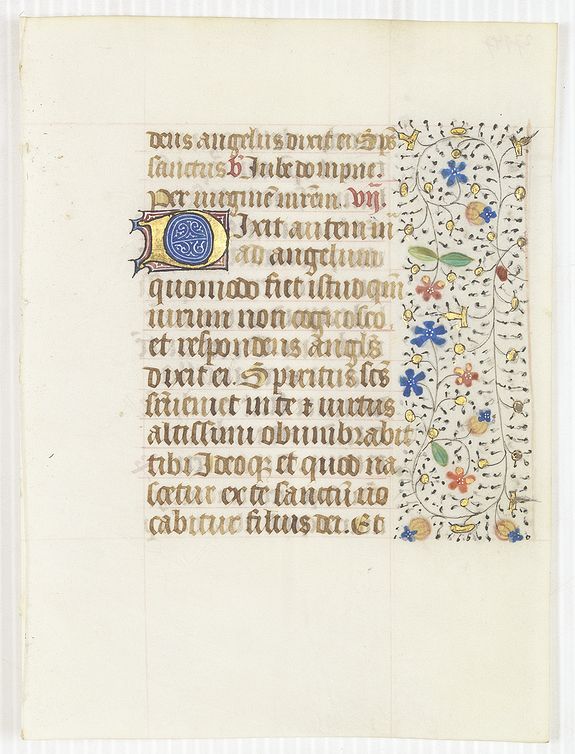 dens angelus dixit ei Sps
sanctus b Iube dompne.
per virginē mrem. vij.
Dixit autem m
ad angelum
quomodo fiet istud qm̄
virum non cognosco.
et respondens angls
dixit ei. Spiritus scs
superveniet in te et virtus
altissimi obumbrabit
tibi Ideoqz et quod na
scetur ex te sanctū vo
cabitur filius dei. Et